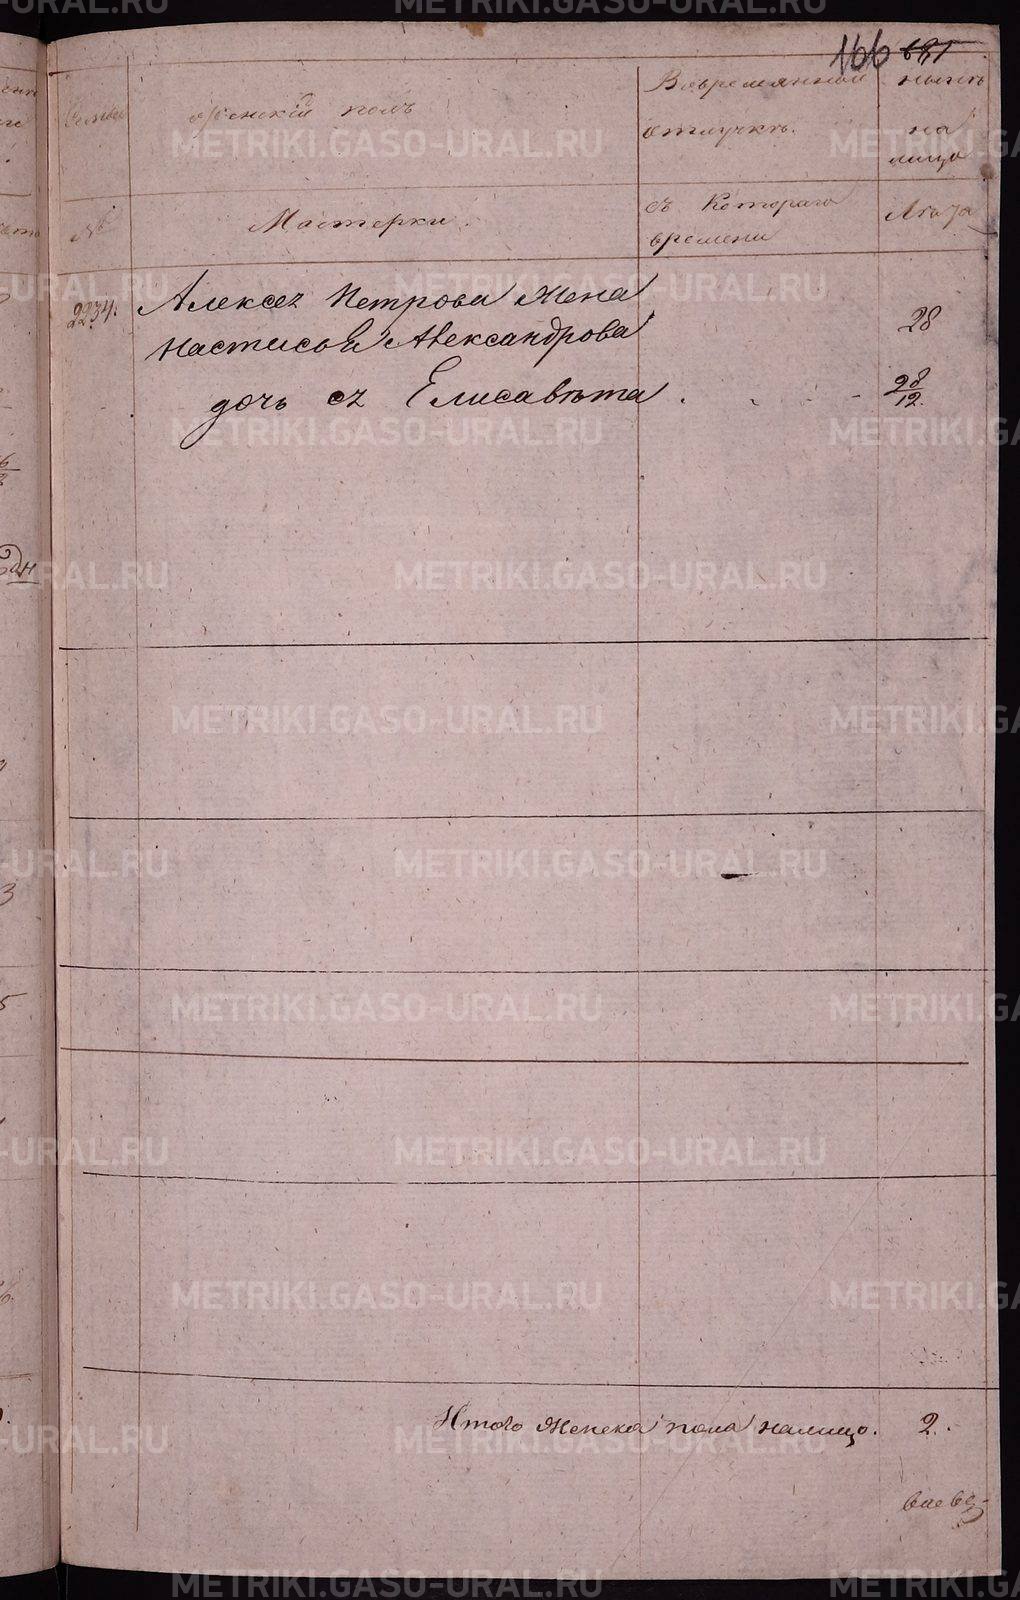 166 681
Семьи
женскій полъ
Вовремянной
отлучкѣ.
нынѣ
на
лицо
№
Мастерки.
съ котораго
времени
Лѣта
2234.
Алексея Петрова жена
Настасья Александрова
28
дочь ея Елисавѣта
28/12
Итого женска пола налицо. 2.
METRIKI.GASO-URAL.RU